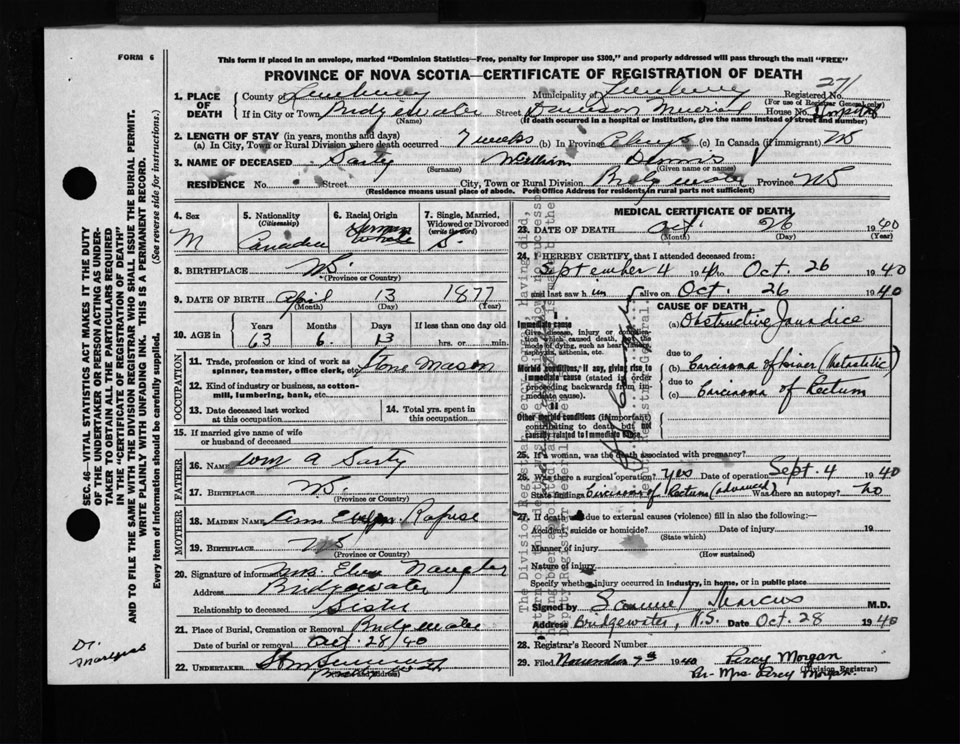 FORM 6
This form if placed in an envelope, marked "Dominion Statistics—Free, penalty for improper use $300," and properly addressed will pass through the mail "FREE"
PROVINCE OF NOVA SCOTIA—CERTIFICATE OF REGISTRATION OF DEATH
271
1. PLACE OF DEATH
County of Lunenburg Municipality of Lunenburg Registered No.
(For use of Registrar General only)
If in City or Town Bridgewater Street Dawson Memorial House No. Hospital
(Name) (If death occurred in a hospital or institution, give the name instead of street and number)
2. LENGTH OF STAY (in years, months and days)
(a) In City, Town or Rural Division where death occurred 7 weeks (b) In Province (c) In Canada (if immigrant) NS
3. NAME OF DECEASED Sarty William Dennis
(Surname) (Given name or names)
RESIDENCE No. Street City, Town or Rural Division Bridgewater Province NS
(Residence means usual place of abode. Post Office Address for residents in rural parts not sufficient)
4. Sex
M
5. Nationality
(Citizenship)
Canadian
6. Racial Origin
German
White
7. Single, Married, Widowed or Divorced
(write the word)
S.
8. BIRTHPLACE NS.
(Province or Country)
9. DATE OF BIRTH April 13 1877
(Month) (Day) (Year)
10. AGE in Years Months Days If less than one day old
63 6 13 hrs. or min.
OCCUPATION
11. Trade, profession or kind of work as spinner, teamster, office clerk, etc. Stone Mason
12. Kind of industry or business, as cotton-mill, lumbering, bank, etc.
13. Date deceased last worked at this occupation
14. Total yrs. spent in this occupation
15. If married give name of wife or husband of deceased
FATHER
16. Name Wm A Sarty
17. Birthplace NS.
(Province or Country)
MOTHER
18. Maiden Name Ann Rafuse
19. Birthplace NS
(Province or Country)
20. Signature of informant Mrs. Naugler
Address Bridgewater
Relationship to deceased Sister
21. Place of Burial, Cremation or Removal Bridgewater
Date of burial or removal Oct. 28/40
22. UNDERTAKER
(Name and address)
MEDICAL CERTIFICATE OF DEATH
23. DATE OF DEATH Oct. 26 1940
(Month) (Day) (Year)
24. I HEREBY CERTIFY, that I attended deceased from:
September 4 1940 to Oct. 26 1940
and last saw him alive on Oct. 26 1940
CAUSE OF DEATH
Immediate cause
Give disease, injury or complication which caused death, not the mode of dying, such as heart failure, asphyxia, asthenia, etc.
(a) Obstructive Jaundice
Morbid conditions, if any, giving rise to immediate cause (stated in order preceding backwards from immediate cause).
due to
(b) Carcinoma of Liver (Metastatic)
due to
(c) Carcinoma of Rectum
II
Other morbid conditions (if important) contributing to death but not causally related to immediate cause.
25. If a woman, was the death associated with pregnancy?
26. Was there a surgical operation? yes Date of operation Sept. 4 1940
State findings Carcinoma of Rectum (advanced) Was there an autopsy? no
27. If death was due to external causes (violence) fill in also the following:—
Accident, suicide or homicide? Date of injury 19
(State which)
Manner of injury
(How sustained)
Nature of injury
Specify whether injury occurred in industry, in home, or in public place
Signed by Samuel Marcus M.D.
Address Bridgewater, N.S. Date Oct. 28 1940
28. Registrar's Record Number
29. Filed November 7th 1940 Percy Morgan
(Division Registrar)
Per- Mrs. Percy Morgan.
SEC. 46—VITAL STATISTICS ACT MAKES IT THE DUTY
OF THE UNDERTAKER OR PERSON ACTING AS UNDER-
TAKER TO OBTAIN ALL THE PARTICULARS REQUIRED
IN THE "CERTIFICATE OF REGISTRATION OF DEATH"
AND TO FILE THE SAME WITH THE DIVISION REGISTRAR WHO SHALL ISSUE THE BURIAL PERMIT.
WRITE PLAINLY WITH UNFADING INK. THIS IS A PERMANENT RECORD.
Every item of information should be carefully supplied. (See reverse side for instructions.)
Dr.